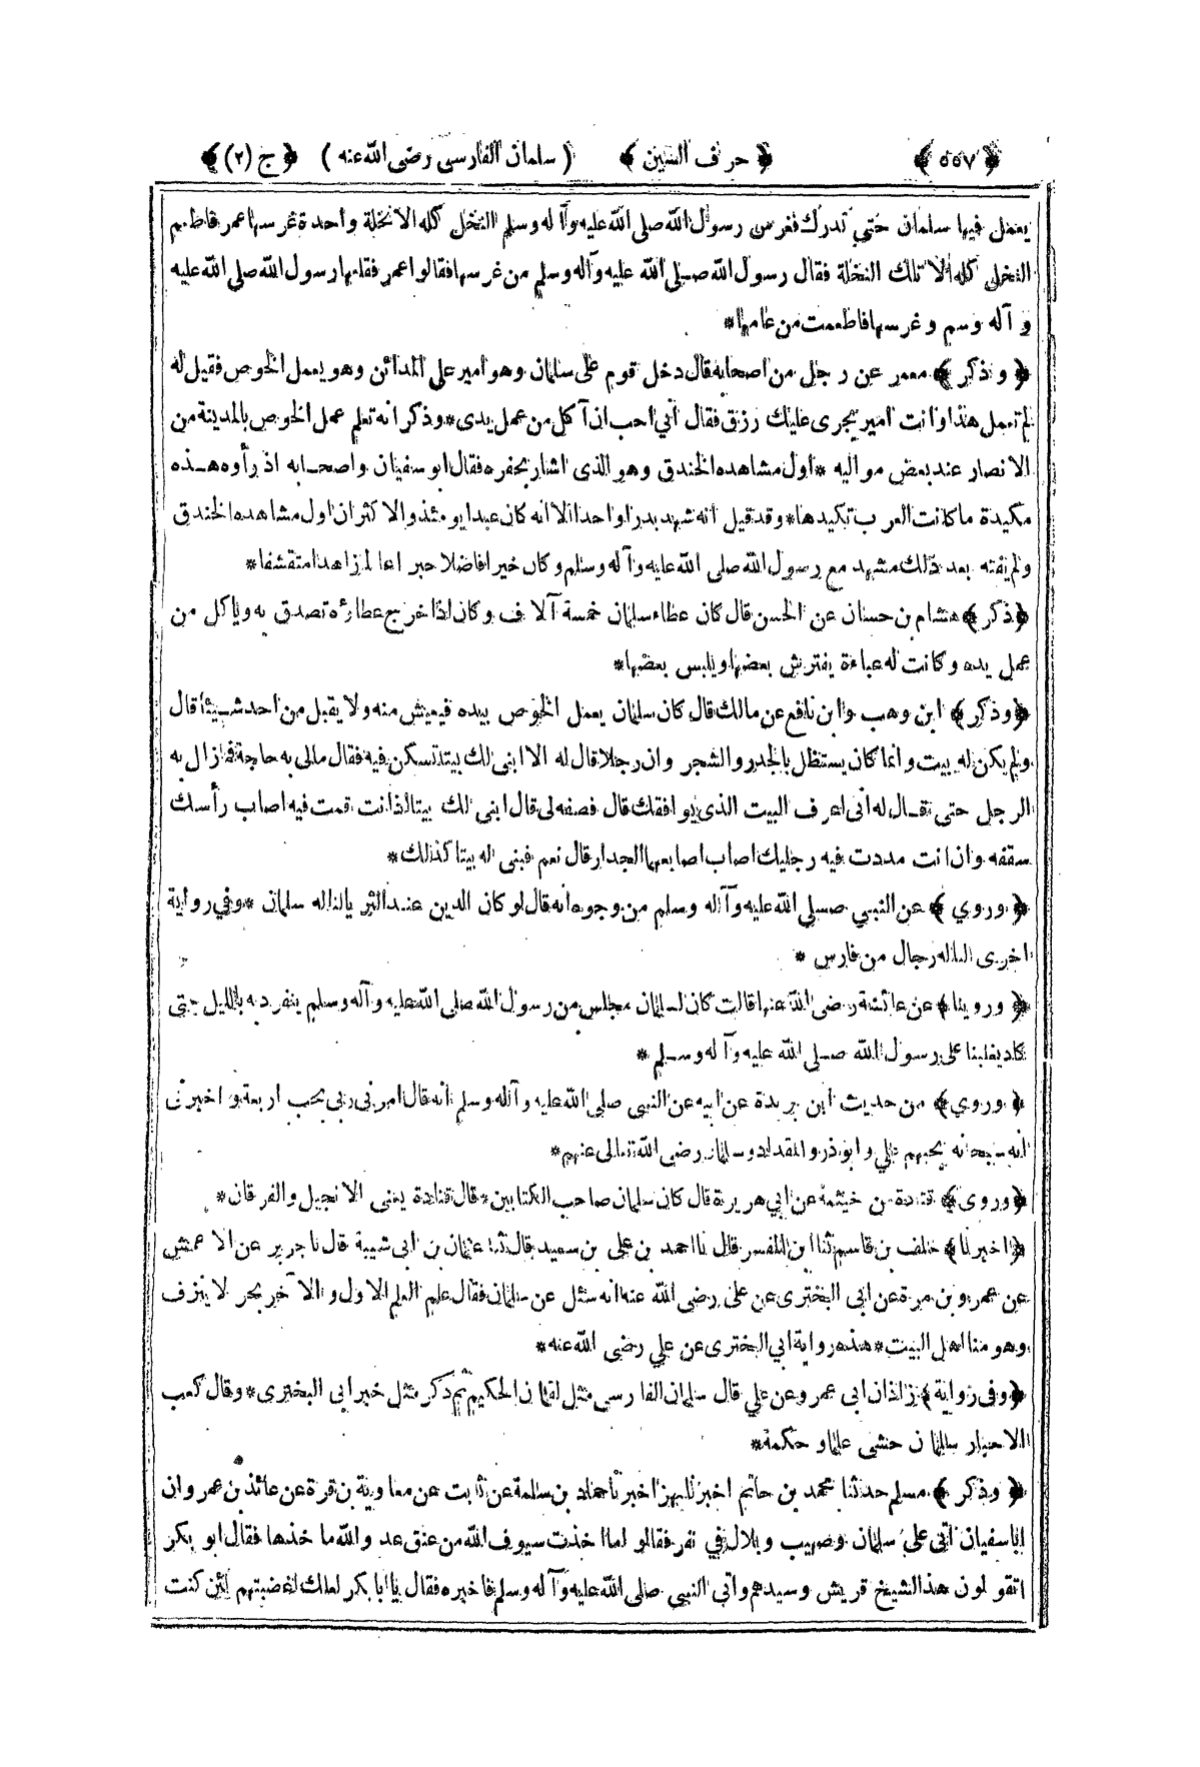 ﴿ ٥٥٧ ﴾ ﴿ حرف السين ﴾ ( سلمان الفارسى رضى الله عنه ) ﴿ ج (٢) ﴾
يعمل فيها سلمان حتى تدرك فغرس رسول الله صلى الله عليه وآله وسلم النخل كله الا نخلة واحدة غرسها عمر فاطعم
النخل كله الا تلك النخلة فقال رسول الله صلى الله عليه وآله وسلم من غرسها فقالوا عمر فقلعها رسول الله صلى الله عليه
وآله وسم وغرسها فاطعمت من عامها *
﴿ وذكر ﴾ معمر عن رجل من اصحابه قال دخل قوم على سلمان وهو امير على المدائن وهو يعمل الخوص فقيل له
لم تعمل هذا وانت امير يجرى عليك رزق فقال انى احب ان آكل من عمل يدى * وذكر انه تعلم عمل الخوص بالمدينة من
الانصار عند بعض مواليه * اول مشاهده الخندق وهو الذى اشار بحفره فقال ابو سفيان واصحابه اذ رأوه هذه
مكيدة ما كانت العرب تكيدها * وقد قيل انه شهد بدرا واحدا الا انه كان عبدا يومئذ والاكثر ان اول مشاهده الخندق
ولم يفته بعد ذلك مشهد مع رسول الله صلى الله عليه وآله وسلم وكان خيرا فاضلا حبرا عالما زاهدا متقشفا *
﴿ ذكر ﴾ هشام بن حسان عن الحسن قال كان عطاء سلمان خمسة آلاف وكان اذا خرج عطاؤه تصدق به وياكل من
عمل يده وكانت له عباءة يفترش بعضها ويلبس بعضها *
﴿ وذكر ﴾ ابن وهب وابن نافع عن مالك قال كان سلمان يعمل الخوص بيده فيعيش منه ولا يقبل من احد شيئا قال
ولم يكن له بيت وانما كان يستظل بالجدر والشجر وان رجلا قال له الا ابنى لك بيتا تسكن فيه فقال مالى به حاجة فمازال به
الرجل حتى قال له انى اعرف البيت الذى يوافقك قال فصفه لى قال ابنى لك بيتا اذا انت قمت فيه اصاب رأسك
سقفه وان انت مددت فيه رجليك اصاب اصابعهما الجدار قال نعم فبنى له بيتا كذلك *
﴿ وروي ﴾ عن النبى صلى الله عليه وآله وسلم من وجوه انه قال لو كان الدين عند الثريا لناله سلمان * وفي رواية
اخرى لناله رجال من فارس *
﴿ وروينا ﴾ عن عائشة رضى الله عنها قالت كان لسلمان مجلس من رسول الله صلى الله عليه وآله وسلم ينفرد به بالليل حتى
كاد يغلبنا على رسول الله صلى الله عليه وآله وسلم *
﴿ وروي ﴾ من حديث ابن بريدة عن ابيه عن النبى صلى الله عليه وآله وسلم انه قال امرنى ربى بحب اربعة واخبرنى
انه سبحانه يحبهم علي وابو ذر والمقداد وسلمان رضى الله تعالى عنهم *
﴿ وروى ﴾ قتادة عن خيثمة عن ابي هريرة قال كان سلمان صاحب الكتابين * قال قتادة يعنى الانجيل والفرقان *
﴿ اخبرنا ﴾ خلف بن قاسم ثنا ابن المفسر قال نا احمد بن على بن سعيد قال ثنا عثمان بن ابى شيبة قال نا جرير عن الاعمش
عن عمرو بن مرة عن ابى البخترى عن على رضى الله عنه انه سئل عن سلمان فقال علم العلم الاول والآخر بحر لا ينزف
وهو منا اهل البيت * هذه رواية ابي البخترى عن علي رضى الله عنه *
﴿ وفى رواية ﴾ زاذان ابى عمر وعن علي قال سلمان الفارسى مثل لقمان الحكيم ثم ذكر مثل خبر ابى البخترى * وقال كعب
الاحبار سلمان حشى علما وحكمة *
﴿ وذكر ﴾ مسلم حدثنا محمد بن حاتم اخبرنا بهز اخبرنا حماد بن سلمة عن ثابت عن معاوية بن قرة عن عائذ بن عمر وان
ابا سفيان اتى على سلمان وصهيب وبلال في نفر فقالو لما اخذت سيوف الله من عنق عد والله ما خذها فقال ابو بكر
اتقولون هذا لشيخ قريش وسيدهم واتى النبى صلى الله عليه وآله وسلم فاخبره فقال يا ابا بكر لعلك اغضبتهم لئن كنت